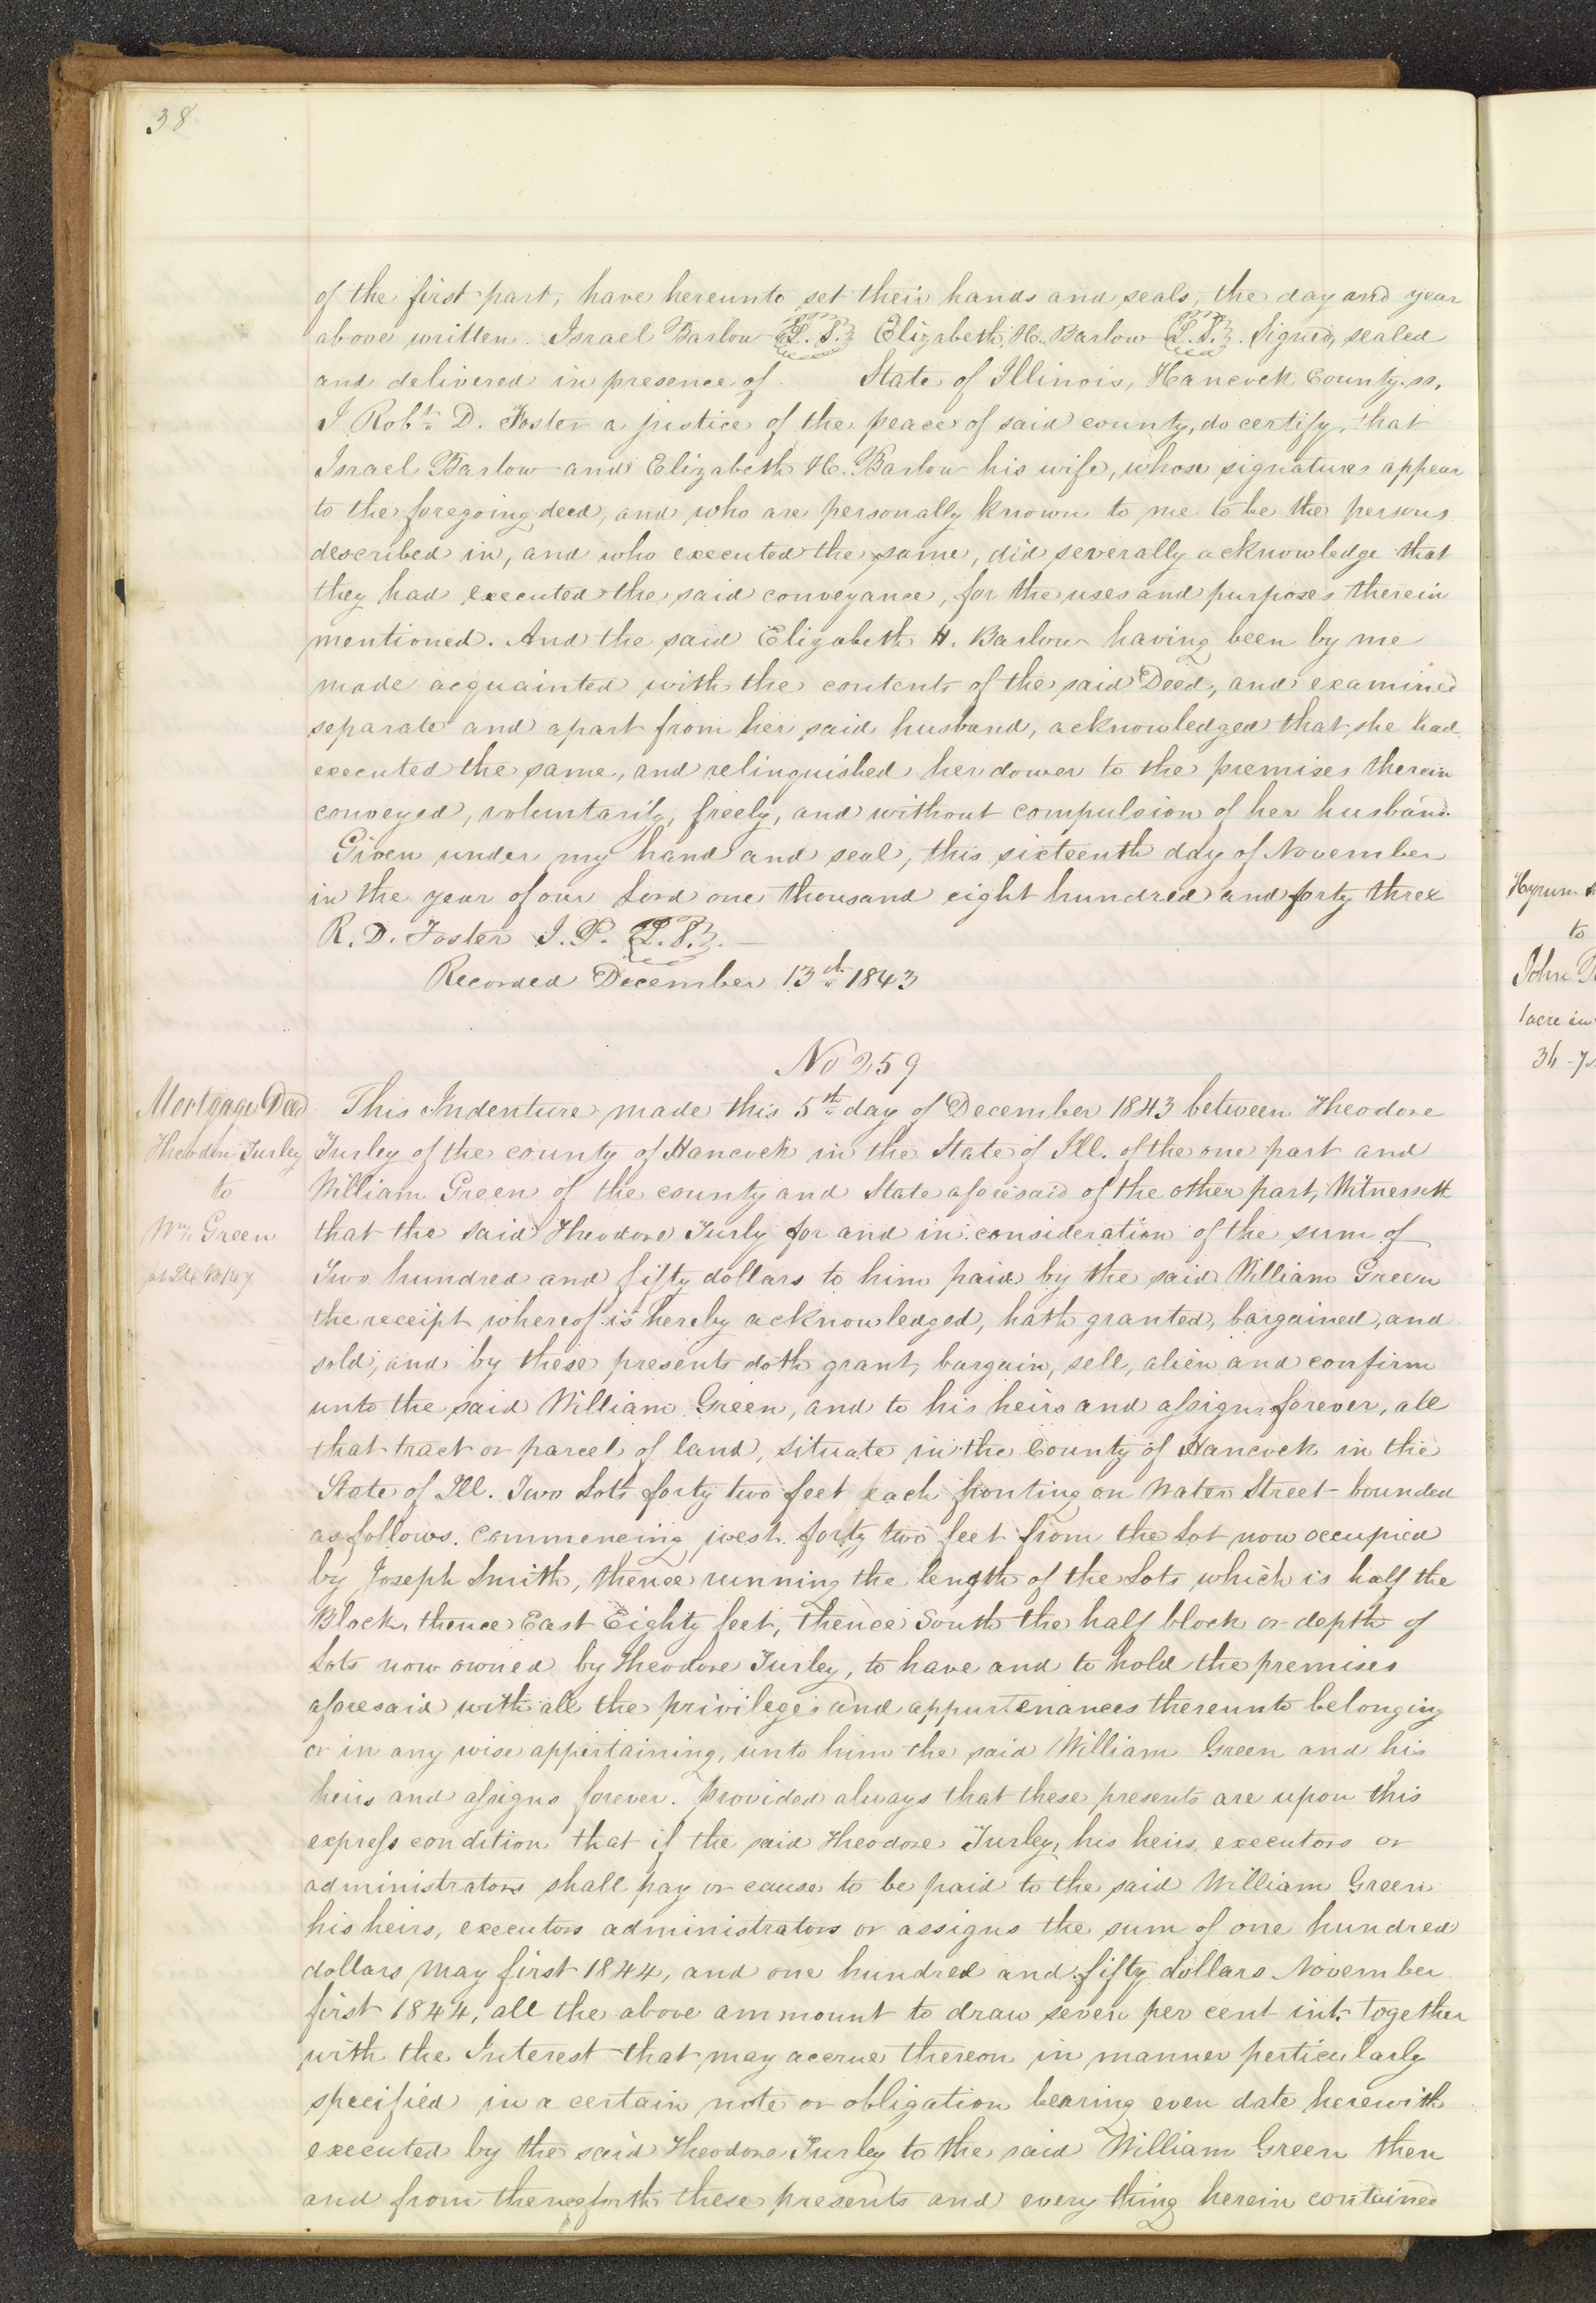 38
of the first part, have hereunto set their hands and seals, the day and year
above written. Israel Barlow L. S. Elizabeth H. Barlow L. S. Signed, sealed
and delivered in presence of State of Illinois, Hancock County. ss.
I Robt. D. Foster a justice of the peace of said county, do certify, that
Israel Barlow and Elizabeth H. Barlow his wife, whose signatures appear
to the foregoing deed, and who are personally known to me to be the persons
described in, and who executed the same, did severally acknowledge that
they had executed the said conveyance, for the uses and purposes therein
mentioned. And the said Elizabeth H. Barlow having been by me
made acquainted with the contents of the said Deed, and examined
separate and apart from her said husband, acknowledged that she had
executed the same, and relinquished her dower to the premises therein
conveyed, voluntarily, freely, and without compulsion of her husband.
Given under my hand and seal, this sixteenth day of November
in the year of our Lord one thousand eight hundred and forty three
R. D. Foster J. P. L. S.
Recorded December 13th 1843
No 259
Mortgage Deed
Theodore Turley
to
Wm. Green
This Indenture made this 5th day of December 1843 between Theodore
Turley of the county of Hancock in the State of Ill. of the one part and
William Green of the county and State aforesaid of the other part, Witnesseth
that the said Theodore Turly for and in consideration of the sum of
Two hundred and fifty dollars to him paid by the said William Green
the receipt whereof is hereby acknowledged, hath granted, bargained, and
sold, and by these presents doth grant, bargain, sell, alien and confirm
unto the said William Green, and to his heirs and assigns forever, all
that tract or parcel of land, situate in the County of Hancock in the
State of Ill. Two Lots forty two feet each fronting on Water Street - bounded
as follows. commencing west forty two feet from the Lot now occupied
by Joseph Smith, thence running the length of the Lots which is half the
Block, thence East Eighty feet, thence South the half block or depth of
Lots now owned by Theodore Turley, to have and to hold the premises
aforesaid with all the privileges and appurtenances thereunto belonging
or in any wise appertaining, unto him the said William Green and his
heirs and assigns forever. Provided always that these presents are upon this
express condition that if the said Theodore Turley, his heirs, executors or
administrators shall pay or cause to be paid to the said William Green
his heirs, executors administrators or assigns the sum of one hundred
dollars May first 1844, and one hundred and fifty dollars November
first 1844, all the above ammount to draw seven per cent int. together
with the Interest that may accrue thereon in manner perticularly
specified in a certain note or obligation bearing even date herewith
executed by the said Theodore Turley to the said William Green then
and from thenceforth these presents and every thing herein contained
Hyrum
to
John
1 acre in